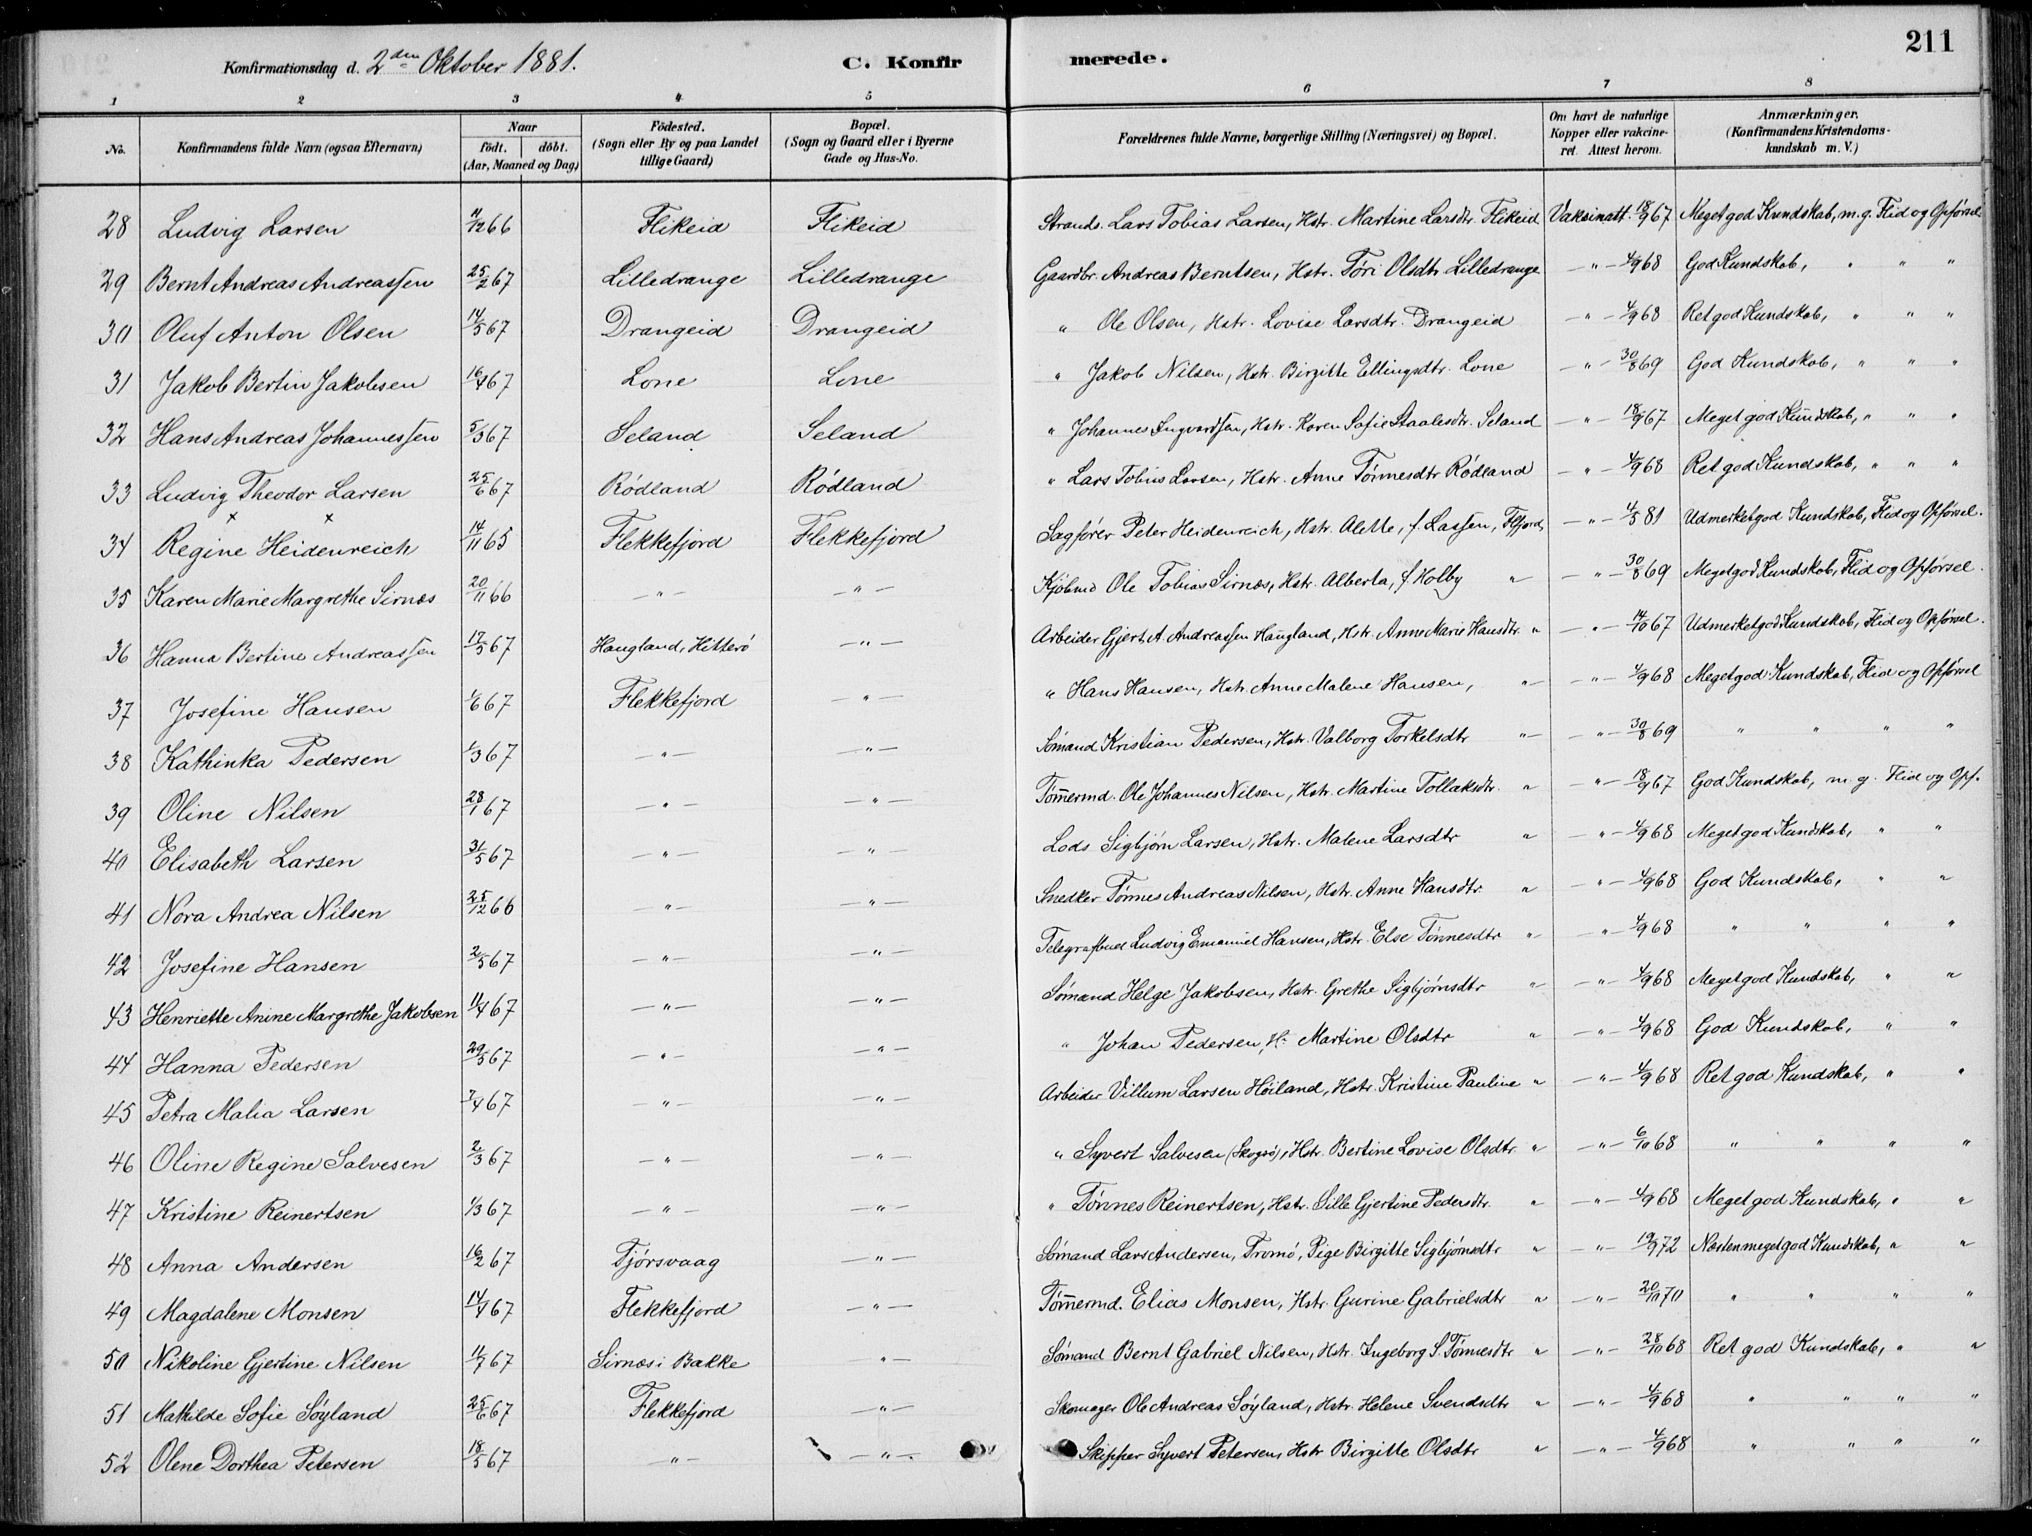 211
Konfirmationsdag d. 2den Oktober 1881. C. Konfirmerede.
1 2 3 4 5 6 7 8
No. Konfirmandens fulde Navn (ogsaa Efternavn) Naar født. døbt. (Aar, Maaned og Dag) Fødested. (Sogn eller By og paa Landet tillige Gaard) Bopæl. (Sogn og Gaard eller i Byerne Gade og Hus-No. Forældrenes fulde Navne, borgerlige Stilling (Næringsvei) og Bopæl. Om havt de naturlige Kopper eller vakcineret. Attest herom. Anmærkninger. (Konfirmandens Kristendomskundskab m. V.)
28 Ludvig Larsen 11/12 66 Flikeid Flikeid Strands. Lars Tobias Larsen, Hstr. Martine Larsdtr. Flikeid Vaksinatt. 18/9 67 Meget god Kundskab, m. g. Flid og Opførsel
29 Bernt Andreas Andreassen 25/2 67 Lilledrange Lilledrange Gaardbr. Andreas Berntsen, Hstr. Tøri Olsdtr Lilledrange – " – 4/9 68 God Kundskab, " " "
30 Oluf Anton Olsen 14/5 67 Drangeid Drangeid " Ole Olsen, Hstr. Lovise Larsdtr. Drangeid – " – 4/9 68 Ret god Kundskab, " " "
31 Jakob Bertin Jakobsen 16/4 67 Lone Lone " Jakob Nilsen, Hstr. Birgitte Ellingsdtr. Lone – " – 30/8 69 God Kundskab, " " "
32 Hans Andreas Johannessen 5/5 67 Seland Seland " Johannes Ingvardsen, Hstr. Karen Sofie Staalesdtr. Seland – " – 18/9 67 Meget god Kundskab, " " "
33 Ludvig Theodor Larsen 25/6 67 Rødland Rødland " Lars Tobias Larsen, Hstr. Anne Tønnesdtr Rødland – " – 4/9 68 Ret god Kundskab, " " "
34 Regine Heidenreich 14/11 65 Flekkefjord Flekkefjord Sagfører Peter Heidenreich, Hstr. Alette, f. Lassen, Ffjord – " – 4/5 81 Udmerket god Kundskab, Flid og Opførsel.
35 Karen Marie Margrethe Sirnæs 20/11 66 – " – – " – Kjøbmd Ole Tobias Sirnæs, Hstr. Alberta, f. Holby " – " – 30/8 69 Meget god Kundskab, Flid og Opførsel.
36 Hanna Bertine Andreassen 17/5 67 Haugland, Hitterø – " – Arbeider Gjert A. Andreassen Haugland, Hstr. Anne Marie Hansdtr. " – " – 14/10 67 Udmerket god Kundskab, Flid og Opførsel.
37 Josefine Hansen 1/6 67 Flekkefjord – " – " Hans Hansen, Hstr. Anne Malene Hansen, " – " – 4/9 68 Meget god Kundskab, Flid og Opførsel
38 Kathinka Pedersen 1/3 67 – " – – " – Sømand Kristian Pedersen, Hstr. Valborg Torkelsdtr " – " – 30/8 69 " " " "
39 Oline Nilsen 28/1 67 – " – – " – Tømmermd. Ole Johannes Nilsen, Hstr. Martine Tollaksdtr. " – " – 18/9 67 God Kundskab, m. g. Flid og Opf.
40 Elisabeth Larsen 31/5 67 – " – – " – Lods Sigbjørn Larsen, Hstr. Malene Larsdtr " – " – 4/9 68 Meget god Kundskab, " "
41 Nora Andrea Nilsen 25/12 66 – " – – " – Snedker Tønnes Andreas Nilsen, Hstr. Anne Hansdtr " – " – 4/9 68 God Kundskab, " "
42 Josefine Hansen 2/5 67 – " – – " – Telegrafbud Ludvig Emanuel Hansen, Hstr. Else Tønnesdtr " – " – 4/9 68 " " " "
43 Henriette Anine Margrethe Jakobsen 11/4 67 – " – – " – Sømand Helge Jakobsen, Hstr. Grethe Sigbjørnsdtr " – " – 4/9 68 Meget god Kundskab, " "
44 Hanna Pedersen 29/5 67 – " – – " – " Johan Pedersen, H. Martine Olsdtr " – " – 4/9 68 God Kundskab, " "
45 Petra Malia Larsen 7/4 67 – " – – " – Arbeider Villum Larsen Høiland, Hstr. Kristine Pauline " – " – 4/9 68 Ret god Kundskab, " "
46 Oline Regine Salvesen 2/3 67 – " – – " – " Syvert Salvesen (Skogsø), Hstr. Bertine Lovise Olsdtr. " – " – 6/10 68 " " " "
47 Kristine Reinertsen 1/3 67 – " – – " – " Tønnes Reinertsen, Hstr. Sille Gjertine Pedersdtr. " – " – 4/9 68 Meget god Kundskab, " "
48 Anna Andersen 16/2 67 Tjørsvaag – " – Sømand Lars Andersen, Tromø, Pige Birgitte Sigbjørnsdtr " – " – 19/9 72 Næsten meget god Kundskab, " "
49 Magdalene Monsen 14/4 67 Flekkefjord – " – Tømmermd. Elias Monsen, Hstr. Gurine Gabrielsdtr " – " – 20/10 70 " " " "
50 Nikoline Gjertine Nilsen 11/7 67 Sirnæs i Bakke – " – Sømand Bernt Gabriel Nilsen, Hstr. Ingeborg S. Tønnesdtr " – " – 28/10 68 Ret god Kundskab, " "
51 Mathilde Sofie Søyland 25/6 67 Flekkefjord – " – Skomager Ole Andreas Søyland, Hstr. Helene Svendsdtr " – " – 4/9 68 " " " "
52 Olene Dorthea Petersen 18/5 67 – " – – " – Skipper Syvert Petersen, Hstr Birgitte Olsdtr " – " – 4/9 68 " " " "